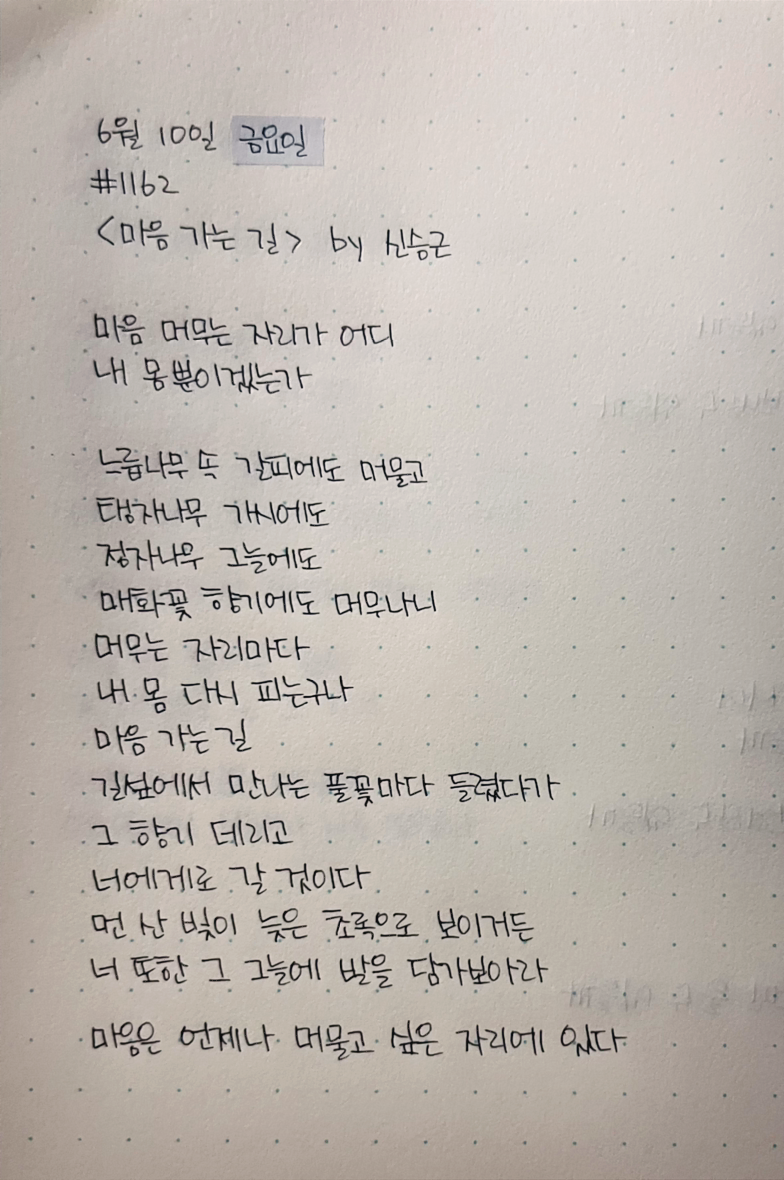 6월 10일 금요일
#1162
<마음 가는 길> by 신승근
마음 머무는 자리가 어디
내 몸뿐이겠는가
느릅나무 속 갈피에도 머물고
탱자나무 가시에도
정자나무 그늘에도
매화꽃 향기에도 머무나니
머무는 자리마다
내 몸 다시 피는구나
마음 가는 길
길섶에서 만나는 풀꽃마다 들렸다가
그 향기 데리고
너에게로 갈 것이다
먼 산 빛이 늦은 초록으로 보이거든
너 또한 그 그늘에 발을 담가보아라
마음은 언제나 머물고 싶은 자리에 있다